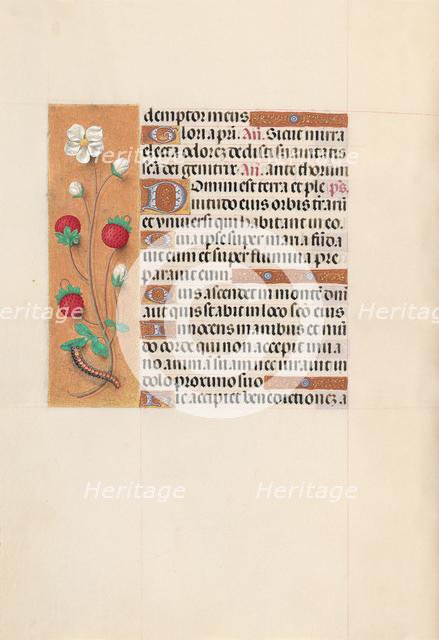 demptor meus
Gloria pri. An. Sicut mirra
electa odorez dedisti suauitatis
sca dei genitrix An. ante thorum
Domini est terra et ple ps.
nitudo eius orbis trarum
et vniuersi qui habitant in eo
Quia ipse super maria funda
uit eum et super flumina pre
parauit eum
Quis ascendet in montem dni
aut quis stabit in loco sco eius
Innocens manibus et mun
do corde qui non accepit in ua
no anima suam nec iurauit in
dolo proximo suo
Hic accipiet benedictionez a
Heritage
Heritage
Heritage
Heritage
Heritage
Heritage